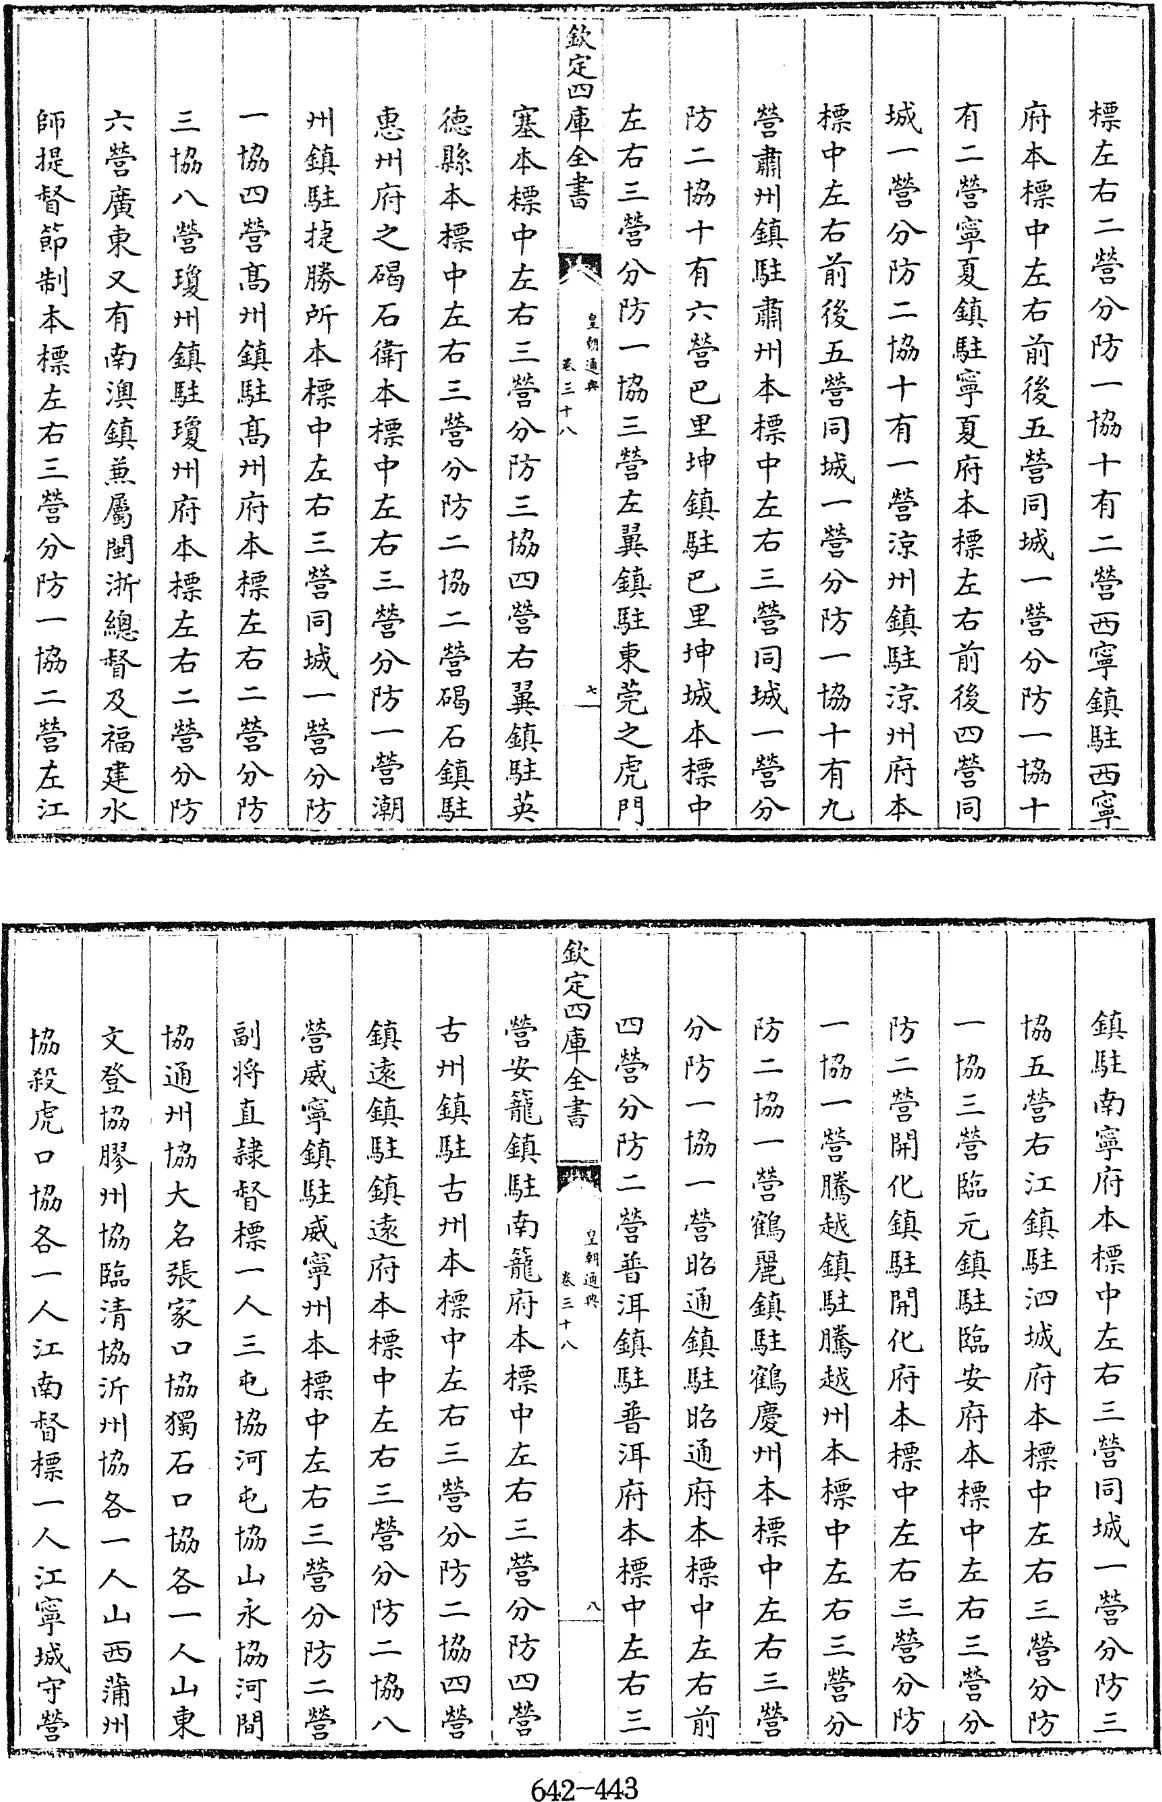 標左右二營分防一協十有二營西寧鎮駐西寧
府本標中左右前後五營同城一營分防一協十
有二營寧夏鎮駐寧夏府本標左右前後四營同
城一營分防二協十有一營涼州鎮駐涼州府本
標中左右前後五營同城一營分防一協十有九
營肅州鎮駐肅州本標中左右三營同城一營分
防二協十有六營巴里坤鎮駐巴里坤城本標中
左右三營分防一協三營左翼鎮駐東莞之虎門
欽定四庫全書
皇朝通典
卷三十八
七
塞本標中左右三營分防三協四營右翼鎮駐英
德縣本標中左右三營分防二協二營碣石鎮駐
惠州府之碣石衛本標中左右三營分防一營潮
州鎮駐捷勝所本標中左右三營同城一營分防
一協四營髙州鎮駐髙州府本標左右二營分防
三協八營瓊州鎮駐瓊州府本標左右二營分防
六營廣東又有南澳鎮兼屬閩浙總督及福建水
師提督節制本標左右三營分防一協二營左江
鎮駐南寧府本標中左右三營同城一營分防三
協五營右江鎮駐泗城府本標中左右三營分防
一協三營臨元鎮駐臨安府本標中左右三營分
防二營開化鎮駐開化府本標中左右三營分防
一協一營騰越鎮駐騰越州本標中左右三營分
防二協一營鶴麗鎮駐鶴慶州本標中左右三營
分防一協一營昭通鎮駐昭通府本標中左右前
四營分防二營普洱鎮駐普洱府本標中左右三
欽定四庫全書
皇朝通典
卷三十八
八
營安籠鎮駐南籠府本標中左右三營分防四營
古州鎮駐古州本標中左右三營分防二協四營
鎮遠鎮駐鎮遠府本標中左右三營分防二協八
營威寧鎮駐威寧州本標中左右三營分防二營
副將直隸督標一人三屯協河屯協山永協河間
協通州協大名張家口協獨石口協各一人山東
文登協膠州協臨清協沂州協各一人山西蒲州
協殺虎口協各一人江南督標一人江寧城守營
642-443